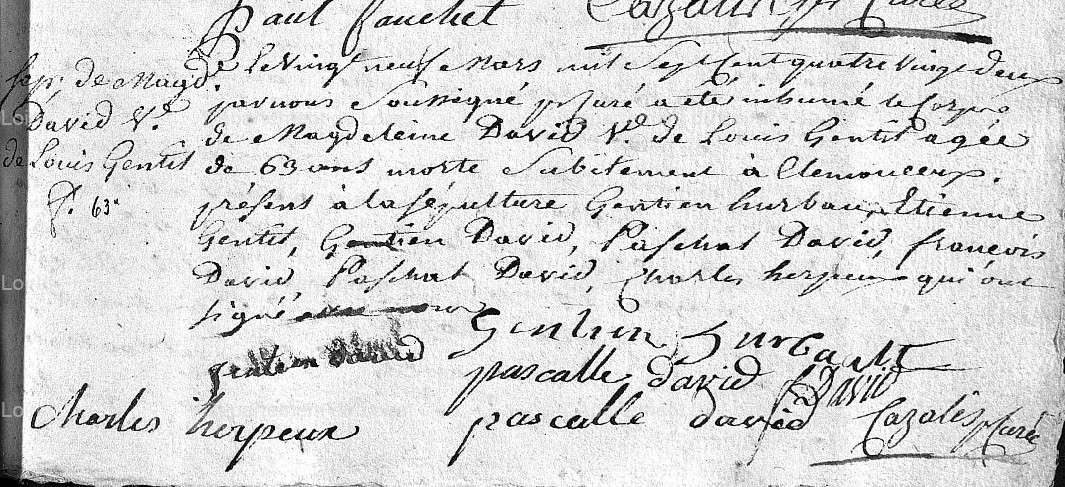 Paul Fouchet Cazalis p^r Curé
Sep. de Magd^e
David V^e
de Louis Gentit
f. 63^a
Le vingt neuf Mars mil Sept Cent quatre vingt deux
par nous Soussigné p^r Curé a eté inhumé le Corps
de Magdeleine David V^e de Louis Gentit agée
de 63 ans morte Subitement à Clemouceux.
présent à la sépulture Gentien hurbau, Etienne
Gentit, Gentien David, Paschal David, françois
David, Paschal David, Charles herpeux qui ont
signé
Gentien Hurbault
gentien david
pascalle david F David
Charles herpeux pascalle david Cazalis p^r Curé